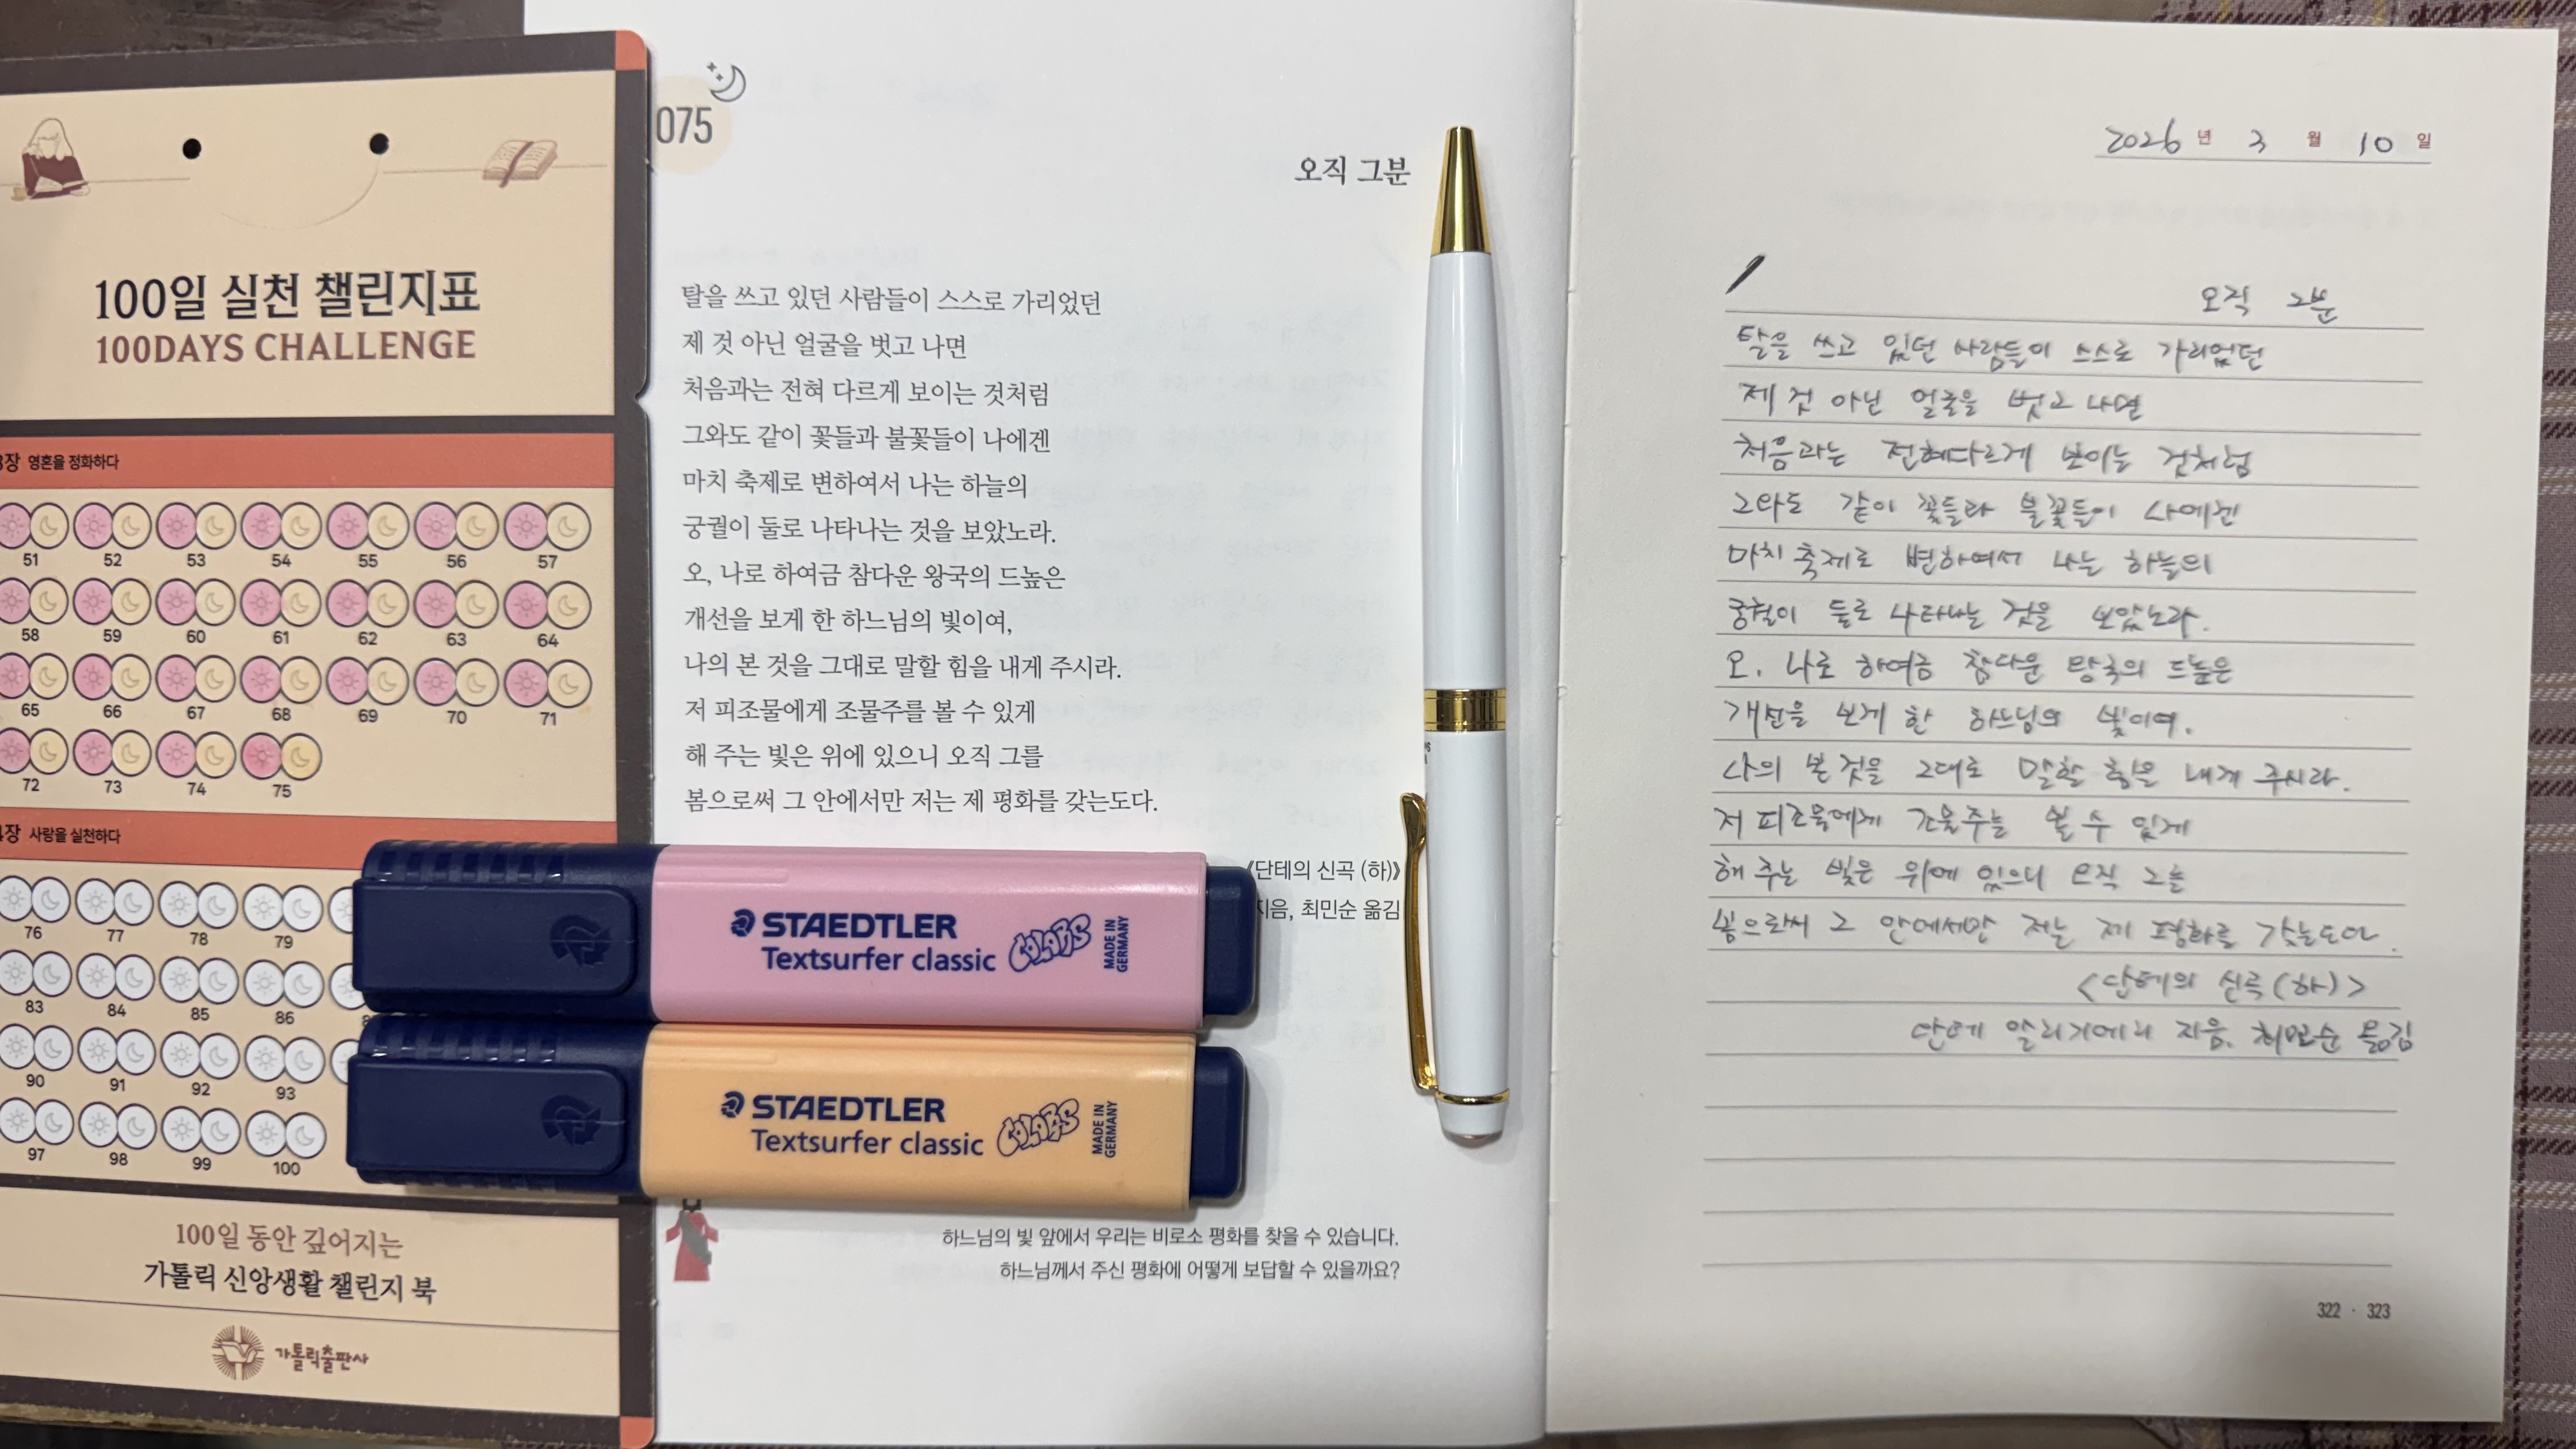 100일 실천 챌린지표
100DAYS CHALLENGE
장 영혼을 정화하다
51 52 53 54 55 56 57
58 59 60 61 62 63 64
65 66 67 68 69 70 71
72 73 74 75
장 사랑을 실천하다
76 77 78 79
83 84 85 86
90 91 92 93
97 98 99 100
100일 동안 깊어지는
가톨릭 신앙생활 챌린지 북
가톨릭출판사
075
오직 그분
탈을 쓰고 있던 사람들이 스스로 가리었던
제 것 아닌 얼굴을 벗고 나면
처음과는 전혀 다르게 보이는 것처럼
그와도 같이 꽃들과 불꽃들이 나에겐
마치 축제로 변하여서 나는 하늘의
궁궐이 둘로 나타나는 것을 보았노라.
오, 나로 하여금 참다운 왕국의 드높은
개선을 보게 한 하느님의 빛이여,
나의 본 것을 그대로 말할 힘을 내게 주시라.
저 피조물에게 조물주를 볼 수 있게
해 주는 빛은 위에 있으니 오직 그를
봄으로써 그 안에서만 저는 제 평화를 갖는도다.
《단테의 신곡 (하)》
지음, 최민순 옮김
STAEDTLER
Textsurfer classic COLORS MADE IN GERMANY
STAEDTLER
Textsurfer classic COLORS MADE IN GERMANY
하느님의 빛 앞에서 우리는 비로소 평화를 찾을 수 있습니다.
하느님께서 주신 평화에 어떻게 보답할 수 있을까요?
2026 년 3 월 10 일
오직 그분
탈을 쓰고 있던 사람들이 스스로 가리었던
제 것 아닌 얼굴을 벗고 나면
처음과는 전혀다르게 보이는 것처럼
그와도 같이 꽃들과 불꽃들이 나에겐
마치 축제로 변하여서 나는 하늘의
궁궐이 둘로 나타나는 것을 보았노라.
오, 나로 하여금 참다운 왕국의 드높은
개선을 보게 한 하느님의 빛이여.
나의 본 것을 그대로 말할 힘을 내게 주시라.
저 피조물에게 조물주를 볼 수 있게
해 주는 빛은 위에 있으니 오직 그를
봄으로써 그 안에서만 저는 제 평화를 갖는도다.
<단테의 신곡(하)>
단테 알리기에리 지음, 최민순 옮김
322 · 323